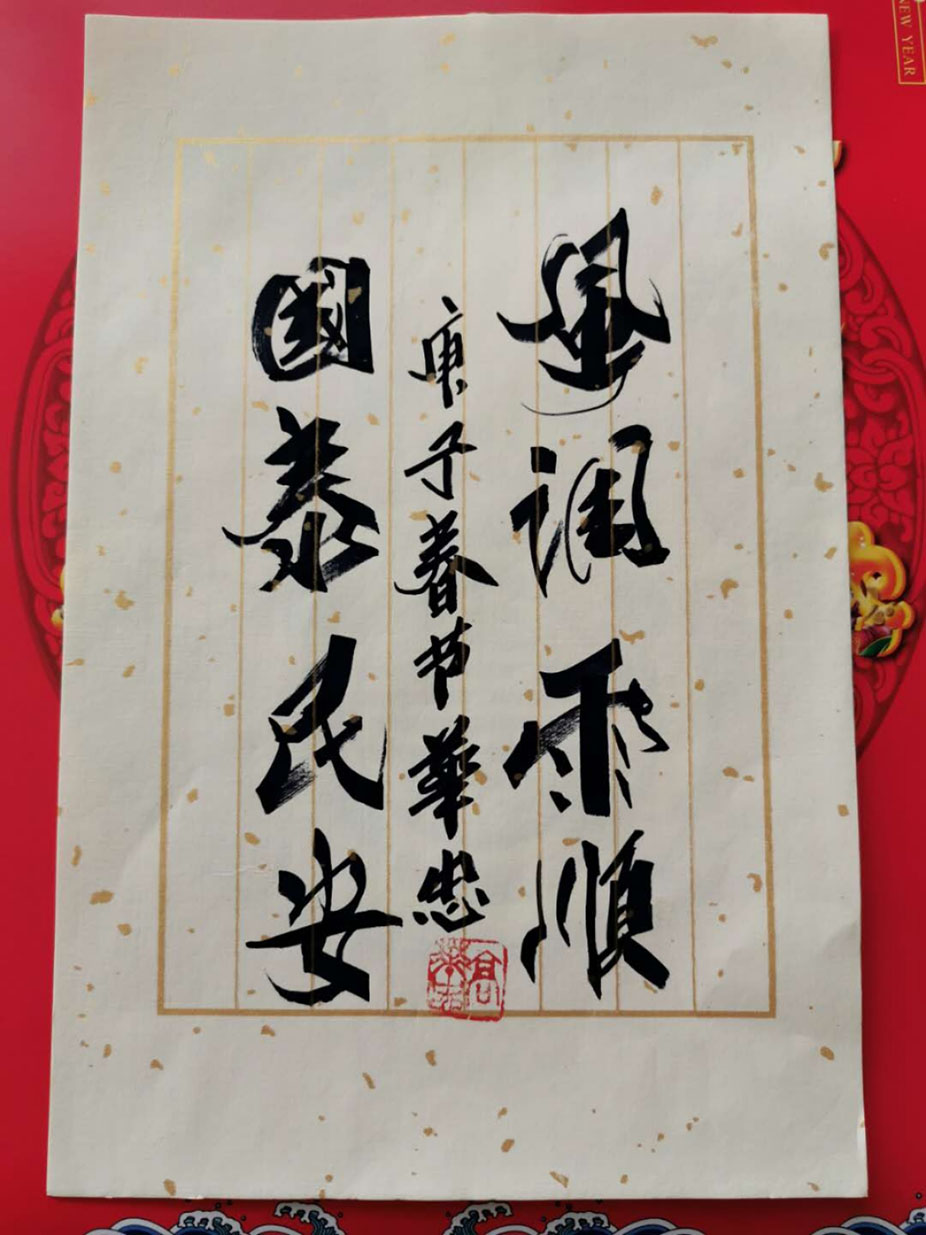 風調雨順
庚子春节華忠
國泰民安
NEW YEAR